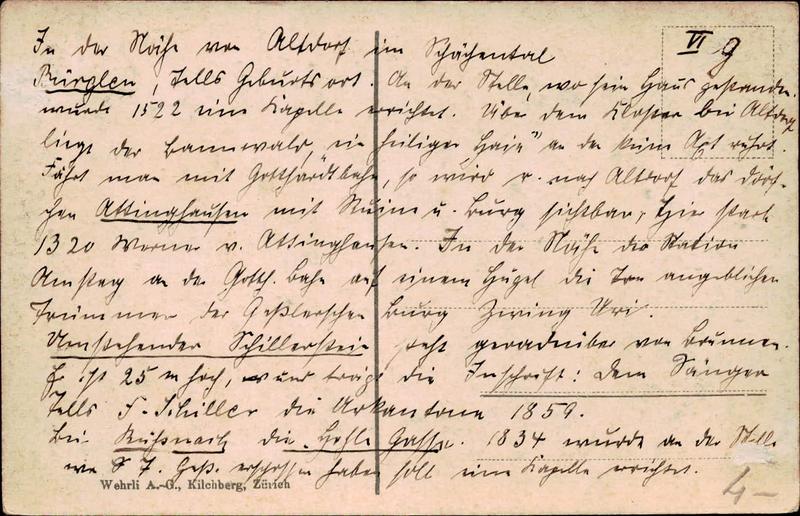 VI g
In der Nähe von Altdorf im Schächental
Bürglen, Tells Geburtsort. An der Stelle, wo sein Haus gestanden.
wurde 1522 eine Kapelle errichtet. Über dem Kloster bei Altdorf
liegt der Bannwald, ein heiliger Hain" an den keine Axt rührt.
Fährt man mit Gotthardtbahn, so wird r. nach Altdorf das Dörf-
chen Attinghausen mit Ruine u. Burg sichtbar, hier starb
1320 Werner v. Attinghausen. In der Nähe der Station
Amsteg an der Gotth. Bahn auf einem Hügel die angeblichen
Trümmer der Geßlerschen Burg Zwing Uri.
Umstehender Schillerstein steht geradüber von Brunnen.
Er ist 25 m hoch, und trägt die Inschrift: Dem Sänger
Tells F. Schiller die Urkantone 1859.
Bei Küßnach die Hohle Gasse. 1834 wurde an der Stelle
wo T. Geß. erschossen haben soll eine Kapelle errichtet.
Wehrli A.-G., Kilchberg, Zürich
4.-